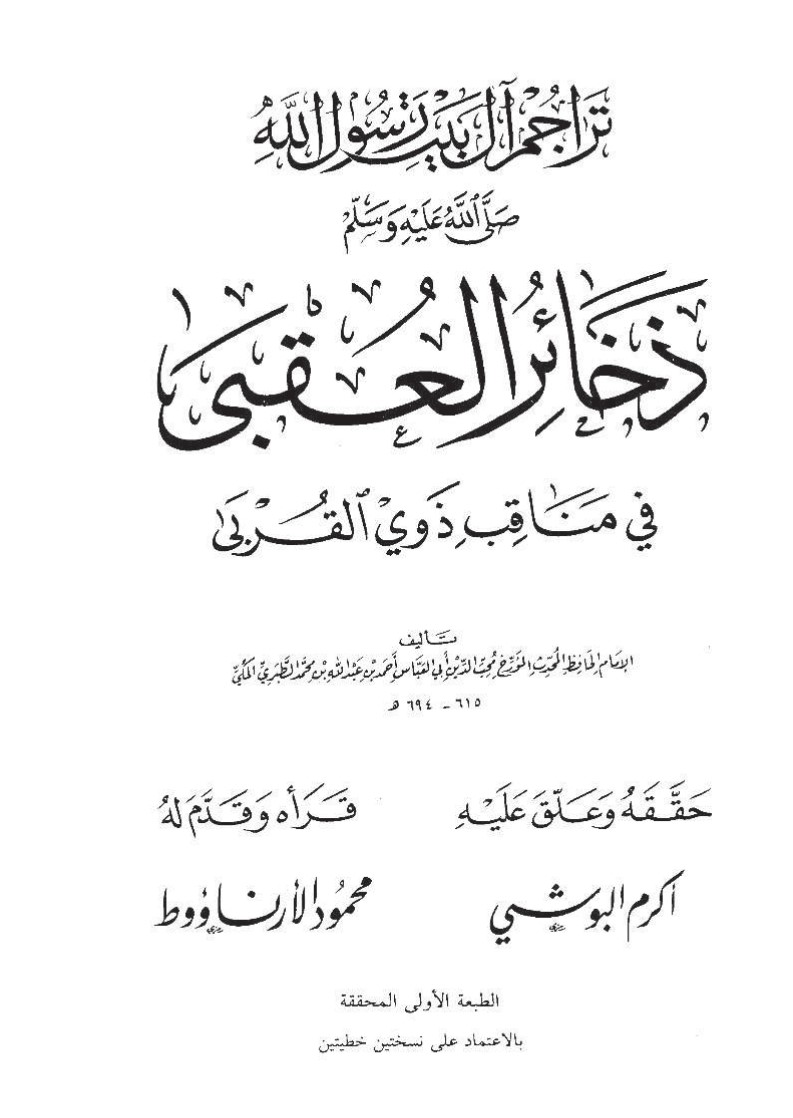 تَراجُم آل بَيت رَسُول اللَّهِ
صَلَّى اللَّهُ عَلَيْهِ وَسَلَّمْ
ذَخَائِرُ العُقبَى
في مَنَاقِبِ ذَوِي القُربَى
تأليف
الإمام الحافظ المحدّث المؤرّخ محبّ الدّين أبي العبّاس أحمد بن عبد الله بن محمّد الطّبري المكّيّ
٦١٥ - ٦٩٤ هـ
حَقَّقَهُ وَعَلّقَ عَلَيْهِ قَرَأه وَقَدَّمَ لَهُ
أكرم البوشي محمود الأرناؤوط
الطبعة الأولى المحققة
بالاعتماد على نسختين خطيتين